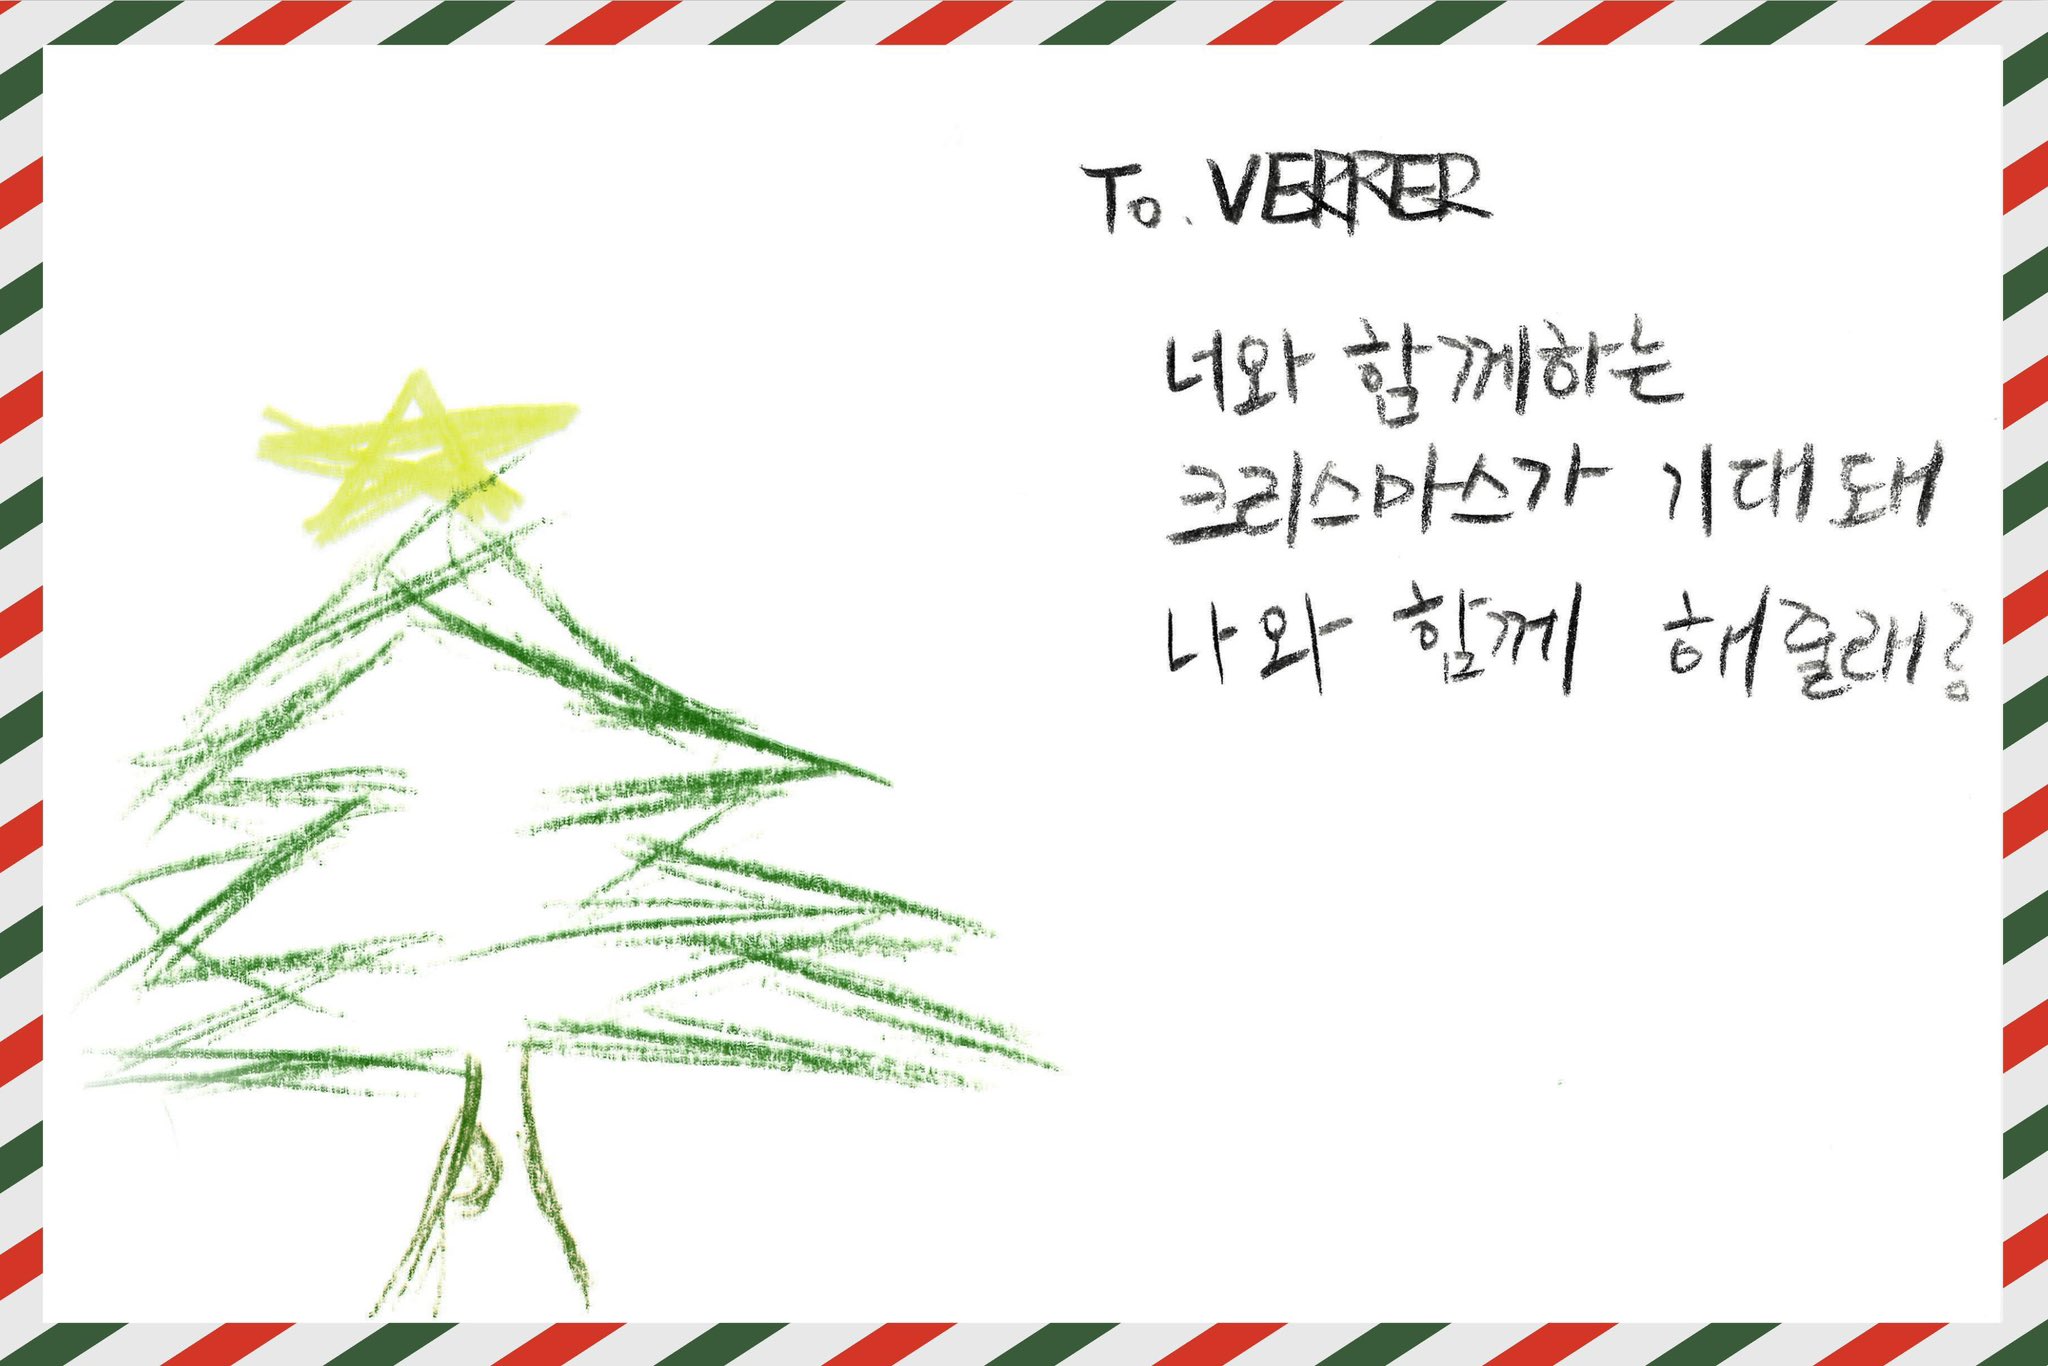 To. VERRER
너와 함께하는
크리스마스가 기대돼
나와 함께 해줄래?